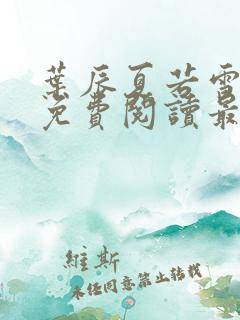 葉辰夏若雪
免費閱讀最
維斯
未任同意禁止转载